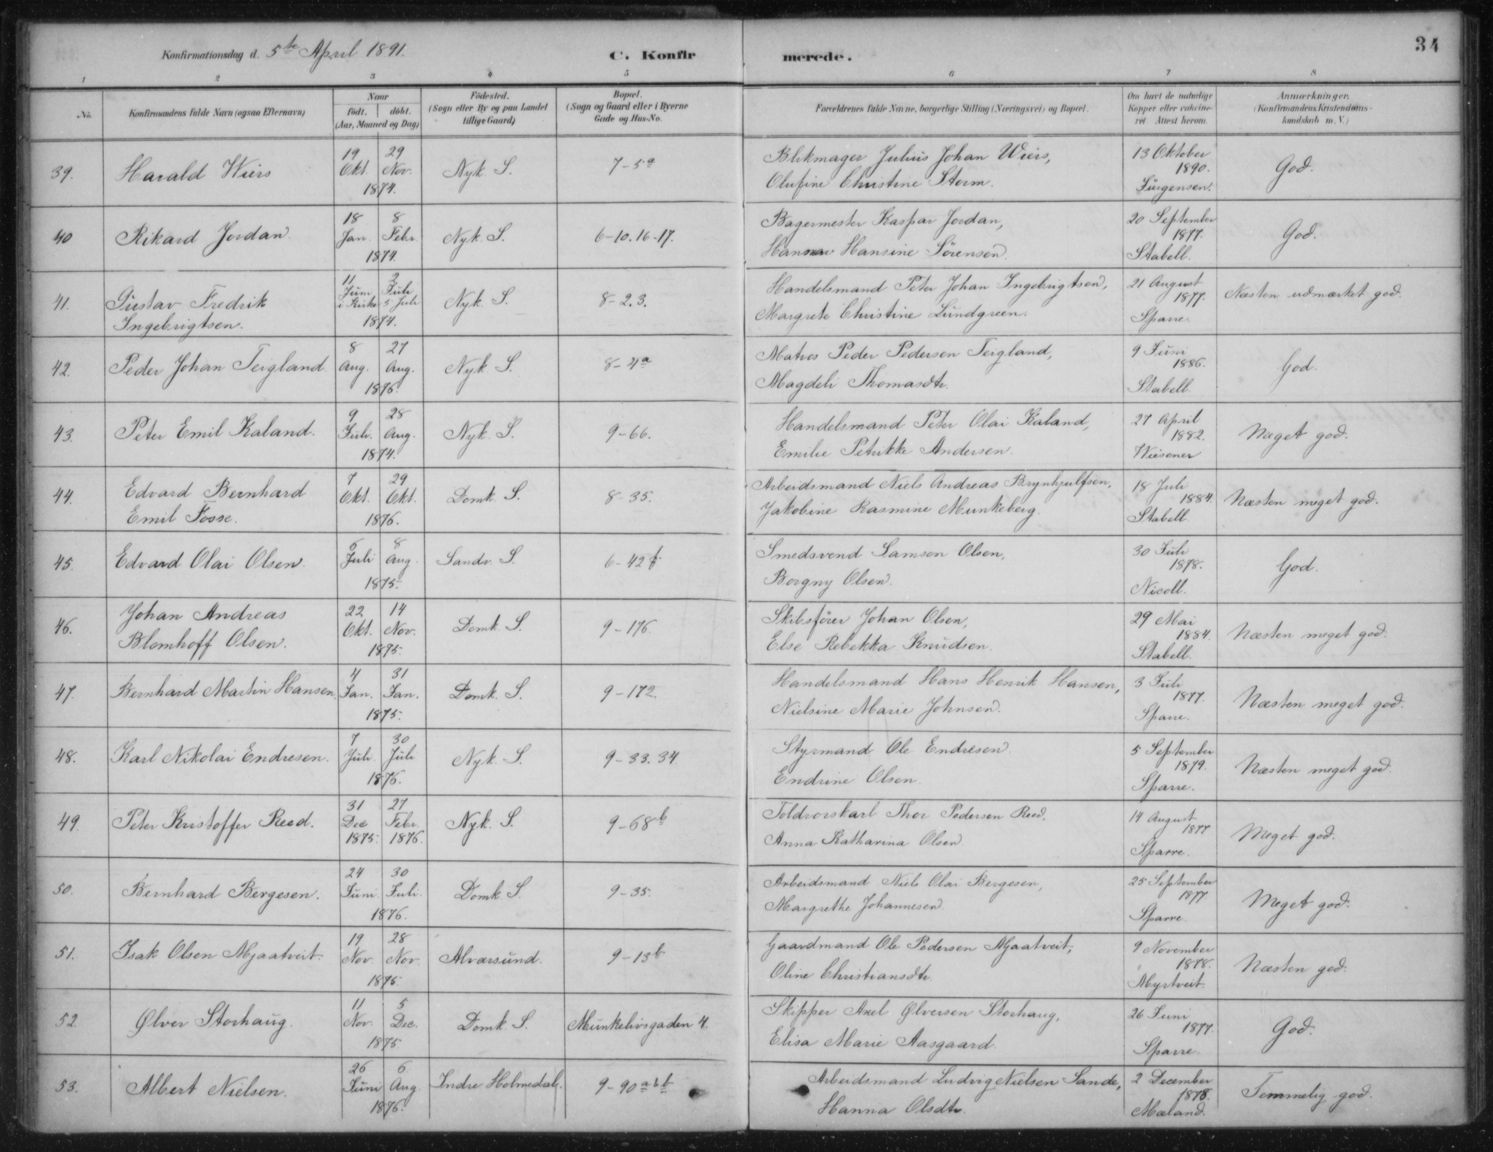 34
Konfirmationsdag d. 5te April 1891.
C. Konfirmerede.
1 2 3 4 5 6 7 8
No. Konfirmandens fulde Navn (ogsaa Efternavn) Naar født. døbt. (Aar, Maaned og Dag) Fødested. (Sogn eller By og paa Landet tillige Gaard) Bopæl. (Sogn og Gaard eller i Byerne Gade og Hus-No. Forældrenes fulde Navne, borgerlige Stilling (Næringsvei) og Bopæl. Om havt de naturlige Kopper eller vaccineret. Attest herom. Anmærkninger. (Konfirmandens Kristendomskundskab m. V.)
39. Harald Wiers 19 Okt. 29 Nov. 1874. Nyk. S. 7-5a Blikmager Julius Johan Wiers, Olufine Christine Storm. 13 Oktober 1890. Jürgensen. God.
40 Rikard Jordan 18 Jan. 8 Febr. 1874. Nyk. S. 6-10.16-17. Bagermester Kaspar Jordan, Hanna Hansine Sørensen. 20 September 1877. Stabell. God.
41. Gustav Fredrik Ingebrigtsen. 11 Juni 3 Juli 5 Juli 1874. Nyk. S. 8-2.3. Handelsmand Peter Johan Ingebrigtsen, Margrete Christine Lundgreen. 21 August 1877. Sparre. Næsten udmærket god.
42. Peder Johan Tergland 8 Aug. 27 Aug. 1876. Nyk. S. 8-4a Matros Peder Pedersen Tergland, Magdeli Thomasdtr. 9 Juni 1886. Stabell. God.
43. Peter Emil Kaland. 9 Juli. 28 Aug. 1874. Nyk. S. 9-66. Handelsmand Peter Olai Kaland, Emilie Petrikke Andersen. 27 April 1882. Wiesener Meget god.
44 Edvard Bernhard Emil Fosse. 7 Okt. 29 Okt. 1876. Domk. S. 8-35. Arbeidsmand Niels Andreas Brynhjulfsen, Jakobine Rasmine Munkeberg. 18 Juli 1884. Stabell. Næsten meget god.
45. Edvard Olai Olsen. 5 Juli 8 Aug. 1875. Sandv. S. 6-42b Smedsvend Samson Olsen, Borgny Olsen. 30 Juli 1878. Nicoll. God.
46. Johan Andreas Blomhoff Olsen. 22 Okt. 14 Nov. 1875. Domk. S. 9-176. Skibsfører Johan Olsen, Else Rebekka Knudsen. 29 Mai 1884. Stabell. Næsten meget god.
47. Bernhard Martin Hansen. 4 Jan. 31 Jan. 1875. Domk. S. 9-172. Handelsmand Hans Henrik Hansen, Nielsine Marie Johnsen. 3 Juli 1877. Sparre. Næsten meget god.
48. Karl Nikolai Endresen. 7 Juli 30 Juli 1876. Nyk. S. 9-33.34. Styrmand Ole Endresen. Endrine Olsen. 5 September 1879. Sparre. Næsten meget god.
49. Peter Kristoffer Reed. 31 Dec 1875. 27 Febr. 1876. Nyk. S. 9-68b Toldrorskarl Thor Pedersen Reed. Anna Katharina Olsen 14 August 1877 Sparre. Meget god.
50. Bernhard Bergesen. 24 Juni 30 Juli. 1876. Domk S. 9-35. Arbeidsmand Niels Olai Bergesen, Margrethe Johannesen 25 September 1877 Sparre. Meget god.
51. Isak Olsen Mjaatveit. 19 Nov. 28 Nov. 1875 Alversund. 9-13b Gaardmand Ole Pedersen Mjaatveit, Oline Christiansdtr. 9 November 1878. Myrtveit. Næsten god.
52 Ølver Storhaug. 11 Nov. 5 Dec. 1875 Domk S. Munkelivsgaden 4. Skipper Axel Ølversen Storhaug, Elisa Marie Aasgaard. 26 Juni 1877. Sparre. God.
53. Albert Nielsen. 26 Juni 6 Aug 1876. Indre Holmedal. 9-90 Arbeidsmand Ludvig Nielsen Sande, Hanna Olsdtr. 2 December 1878. Mæland. Temmelig god.